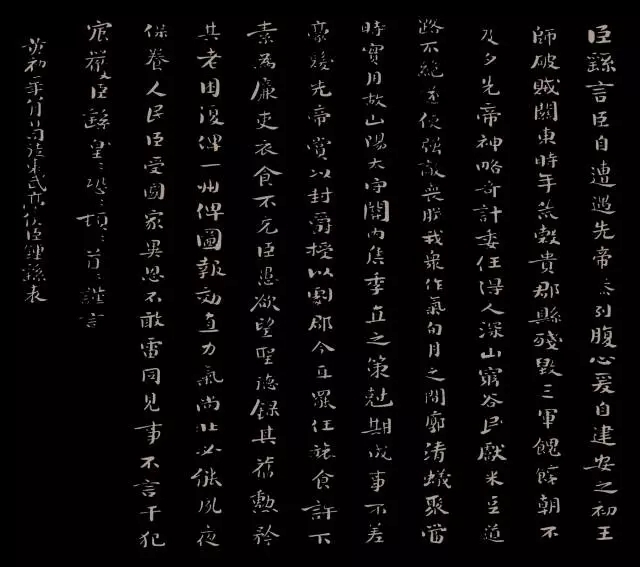 臣繇言臣自遭遇先帝忝列腹心爰自建安之初王
師破賊關東時年荒穀貴郡縣殘毀三軍餽饟朝不
及夕先帝神略奇計委任得人深山窮谷民獻米豆道
路不絕遂使强敵喪膽我衆作氣旬月之間廓清蟻聚當
時實用故山陽太守關內侯季直之策剋期成事不差
豪髮先帝賞以封爵授以劇郡今直罷任旅食許下
素為廉吏衣食不充臣愚欲望聖德錄其舊勳矜
其老困復俾一州俾圖報效直力氣尚壯必能夙夜
保養人民臣受國家異恩不敢雷同見事不言干犯
宸嚴臣繇皇皇恐恐頓首頓首謹言
黃初二年八月日司徒東武亭侯臣鍾繇表